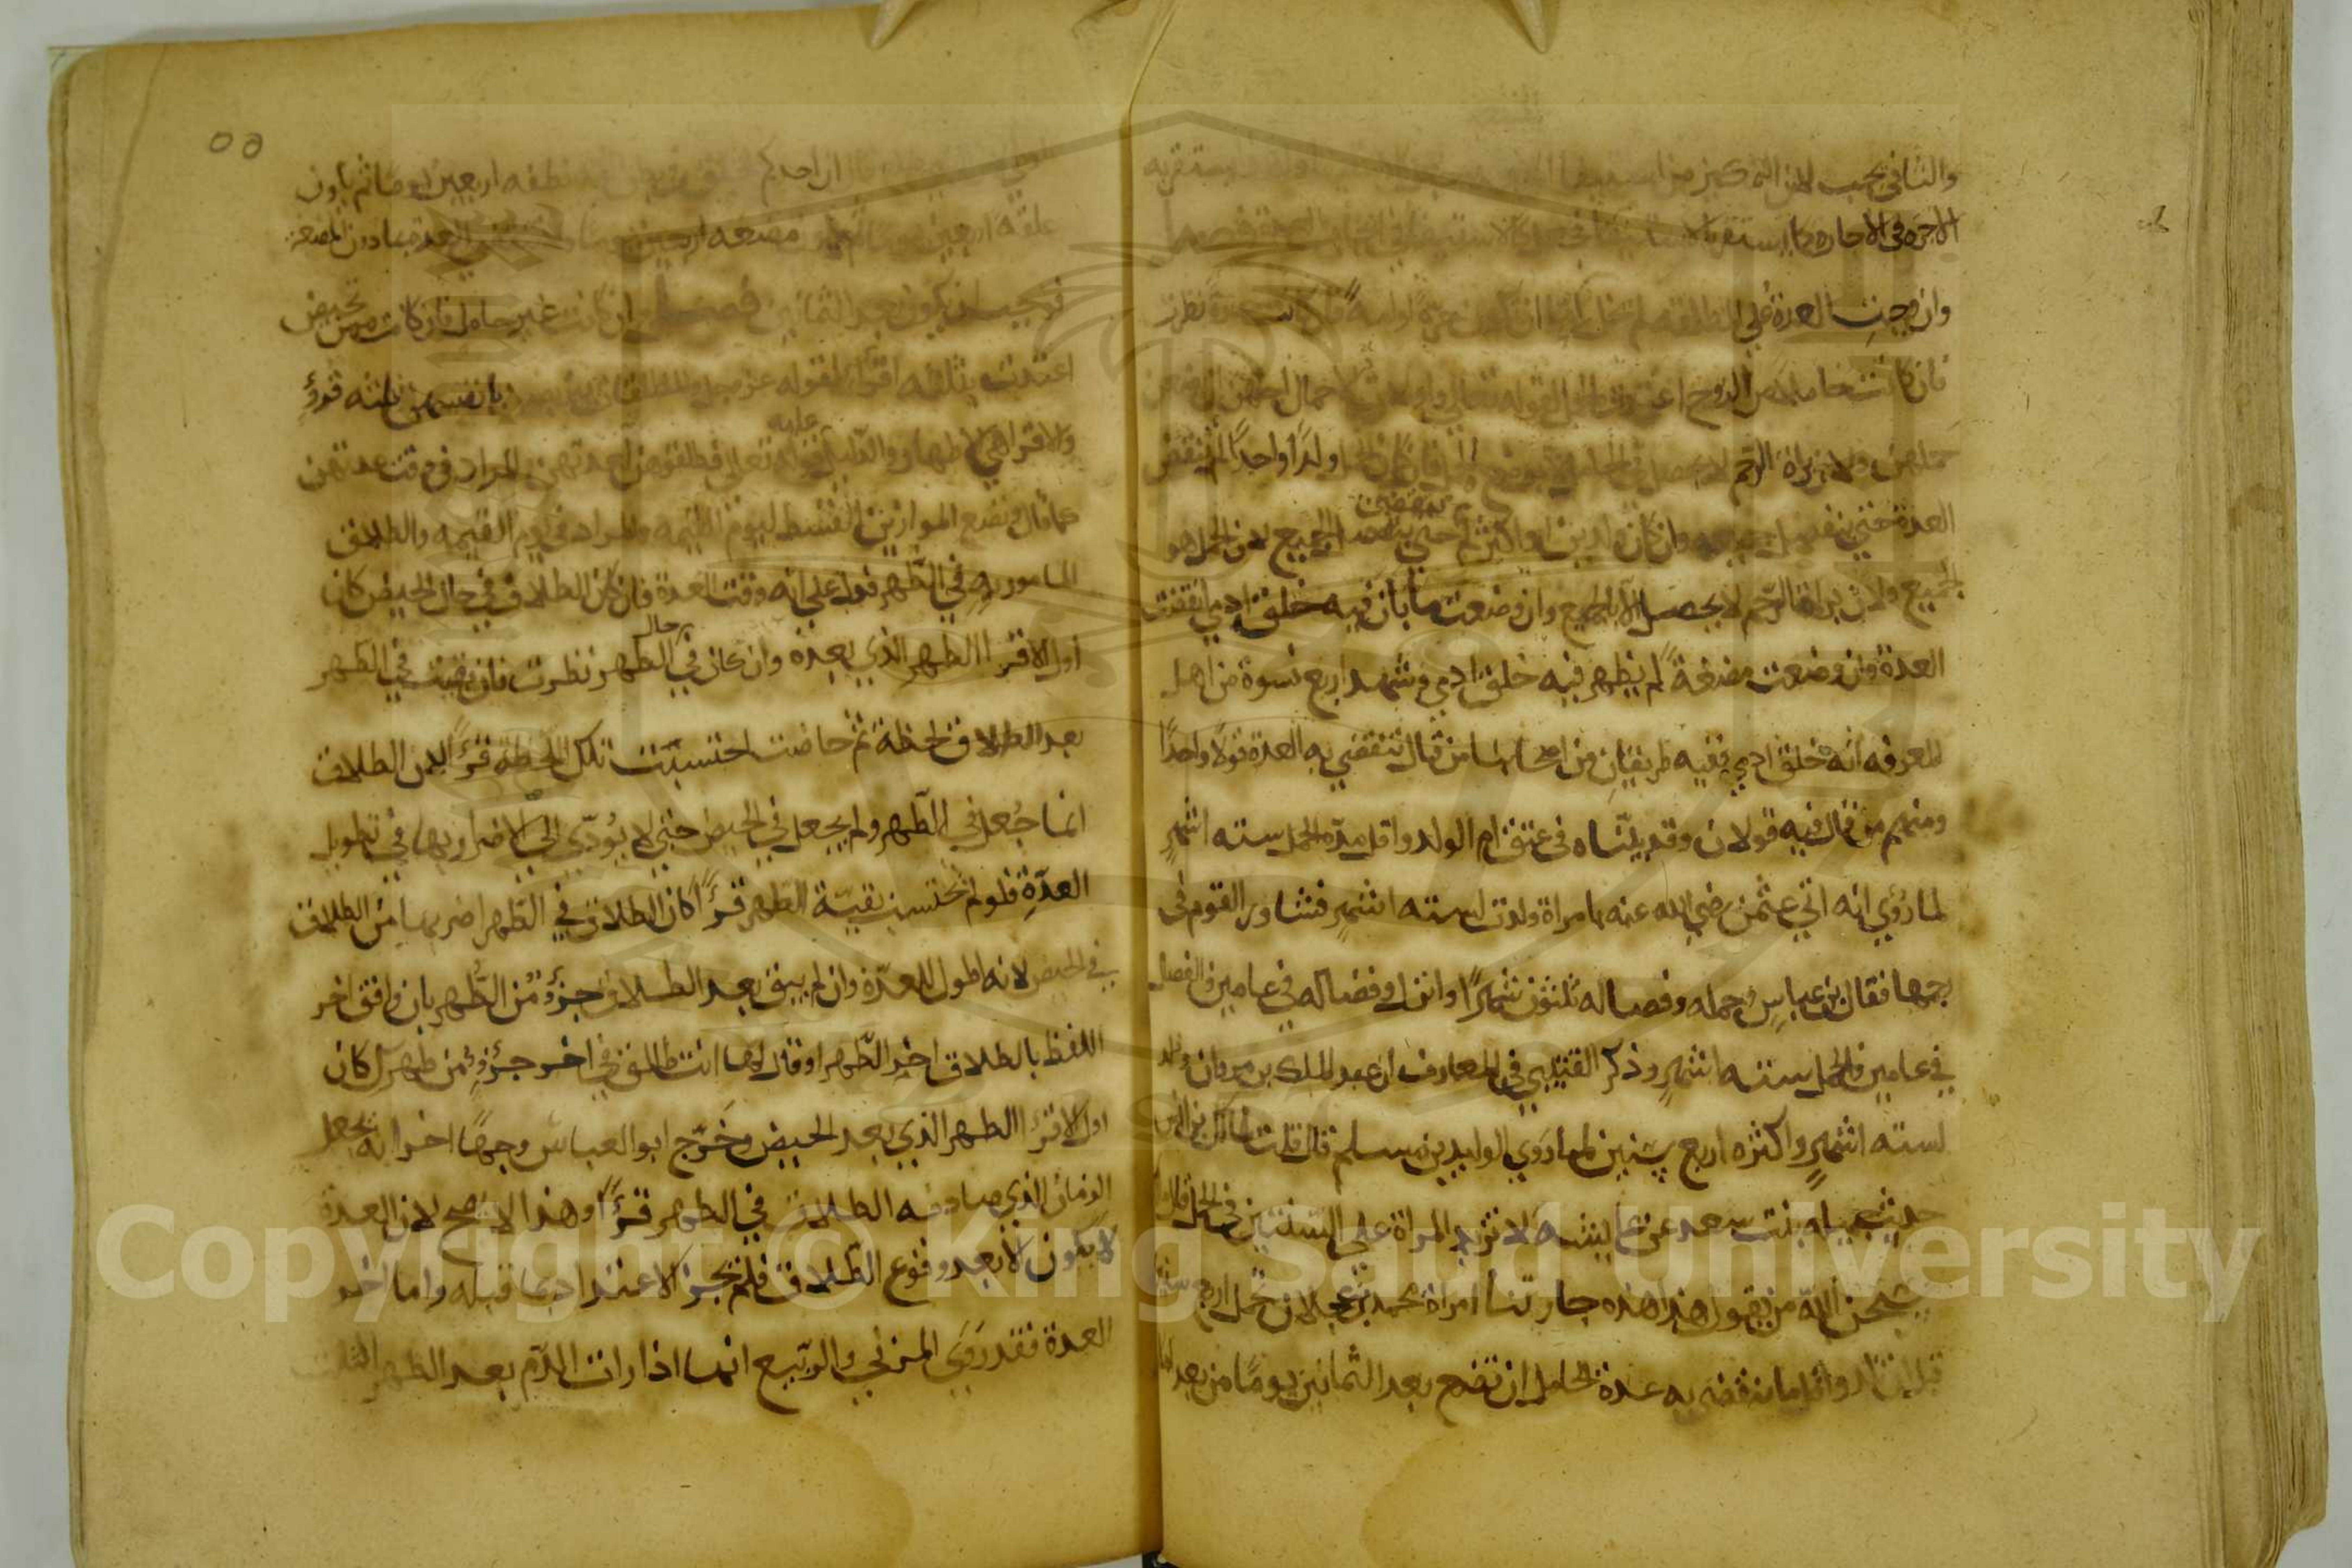 والثاني يجب لان التمكين من استيفا
الاجره في الاجاره كما يستقر بالاستيفا
وان وجبت العدة على المطلقه لم تخل اما ان تكون حرةً او امةً فان كانت حرةً نظرت
فان كانت حاملا من الزوج اعتدت بالحمل لقوله تعالى واولات الاحمال اجلهن ان يضعن
حملهن ولان براة الرحم لا يحصل في الحامل الا بوضع الحمل فان كان الحمل ولدًا واحدًا لم تنقض
العدة حتى ينفصل جميعه وان كان ولدين او اكثر لم تنقضي حتى ينفصل الجميع لان الحمل هو
الجميع ولان براة الرحم لا يحصل الا بالجميع وان وضعت ما بان فيه خلق ادمي انقضت
العدة وان وضعت مضغةً لم يظهر فيه خلق ادمي وشهد اربع نسوة من اهل
المعرفه انه خلق ادمي ففيه طريقان من اصحابنا من قال تنقضي به العدة قولًا واحدًا
ومنهم من قال فيه قولان وقد بيّناه في عتق ام الولد واقل مدّه الحمل سته اشهرٍ
لما رُوي انه اتي عثمن رضي الله عنه بامراة ولدت لسته اشهرٍ فشاور القوم في
رجمها فقال بن عباسٍ وحمله وفصاله ثلثون شهرًا وانزل وفصاله في عامين والفصال
في عامين والحمل سته اشهرٍ وذكر القتيبي في المعارف ان عبد الملك بن مروان ولد
لسته اشهرٍ واكثره اربع سنين لما روي الوليد بن مسلم قال قلت لمالك بن انس
حديث جميله بنت سعد عن عايشه لا تزيد المراة على السنتين في الحمل قال مالك
سبحن الله من يقول هذا هذه جارتنا امراة محمد بن عجلان تحمل اربع سنين
قبل ان تلد واقل ما ينقضي به عدة الحامل ان تضع بعد الثمانين يومًا من بعد
ان احدكم نطفه اربعين يومًا ثم يكون
علقه اربعين يومًا ثم يكون مضغه اربعين يومًا ولا تنقضي العدة بما دون المضغه
فوجب ان يكون بعد الثمانين فصــل وان كانت غير حامل فان كانت ممن تحيض
اعتدت بثلثه اقراء لقوله عز وجل والمطلقات يتربصن بانفسهن ثلثه قروءٍ
والاقراهي الاطهار والدليل عليه قوله تعالى فطلقوهن لعدتهن والمراد في وقت عدتهن
كما قال ونضع الموازين القسط ليوم القيمه والمراد في يوم القيمه والطلاق
المامور به في الطّهر فدل على انه وقت العدة فان كان الطلاق في حال الحيض كان
اول الاقرا الطهر الذي بعده وان كان في حال الطهر نظرت فان بقيت في الطهر
بعد الطلاق لحظة ثم حاضت احتسبت تلك اللحظة قرءًا لان الطلاق
انما جُعل في الطّهر ولم يجعل في الحيض حتى لا يُودّي الى الاضرار بها في تطويل
العدّةِ فلو لم تحتسب بقيّة الطّهر قرءًا كان الطلاق في الطّهر اضر بها من الطلاق
في الحيض لانه اطول للعدّة وان لم يبق بعد الطلاق جزءٌ من الطُّهر بان وافق اخر
اللفظ بالطلاق اخر الطّهر او قال لها انت طالق في اخر جزءٍ من طهرك كان
اول الاقرا الطهر الذي بعد الحيض وخَرّج ابو العباس وجهًا اخر انه يجعل
الزمان الذي صادفه الطلاق في الطهر قرءًا وهذا لا يصح لان العدة
لا يكون الا بعد وقوع الطلاق فلم يجز الاعتداد بما قبله واما اخر
العدة فقد رَوَي المزني والربيع انها اذا رات الدّم بعد الطهر الثلث